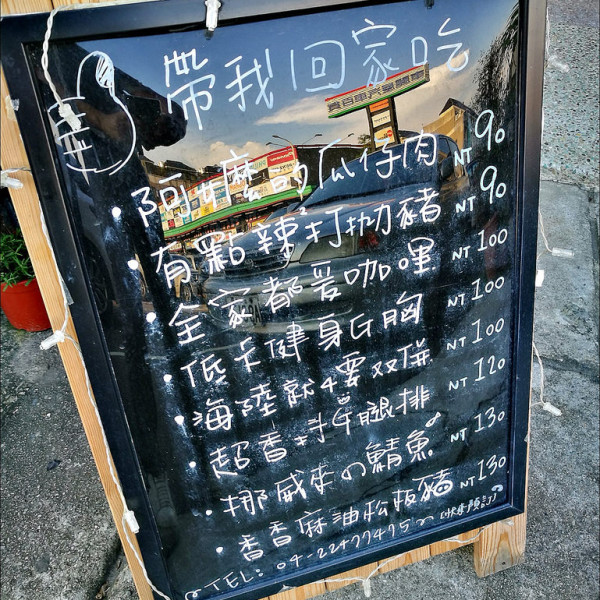 帶我回家吃
阿嬤的瓜仔肉 NT 90
有點辣打拋豬 NT 90
全家都愛咖哩 NT 100
低卡健身G胸 NT 100
海陸就4要双併 NT 100
超香ㄎㄎ腿排 NT 120
挪威來の鯖魚 NT 130
香香麻油松板豬 NT 130
TEL: 04-22477495